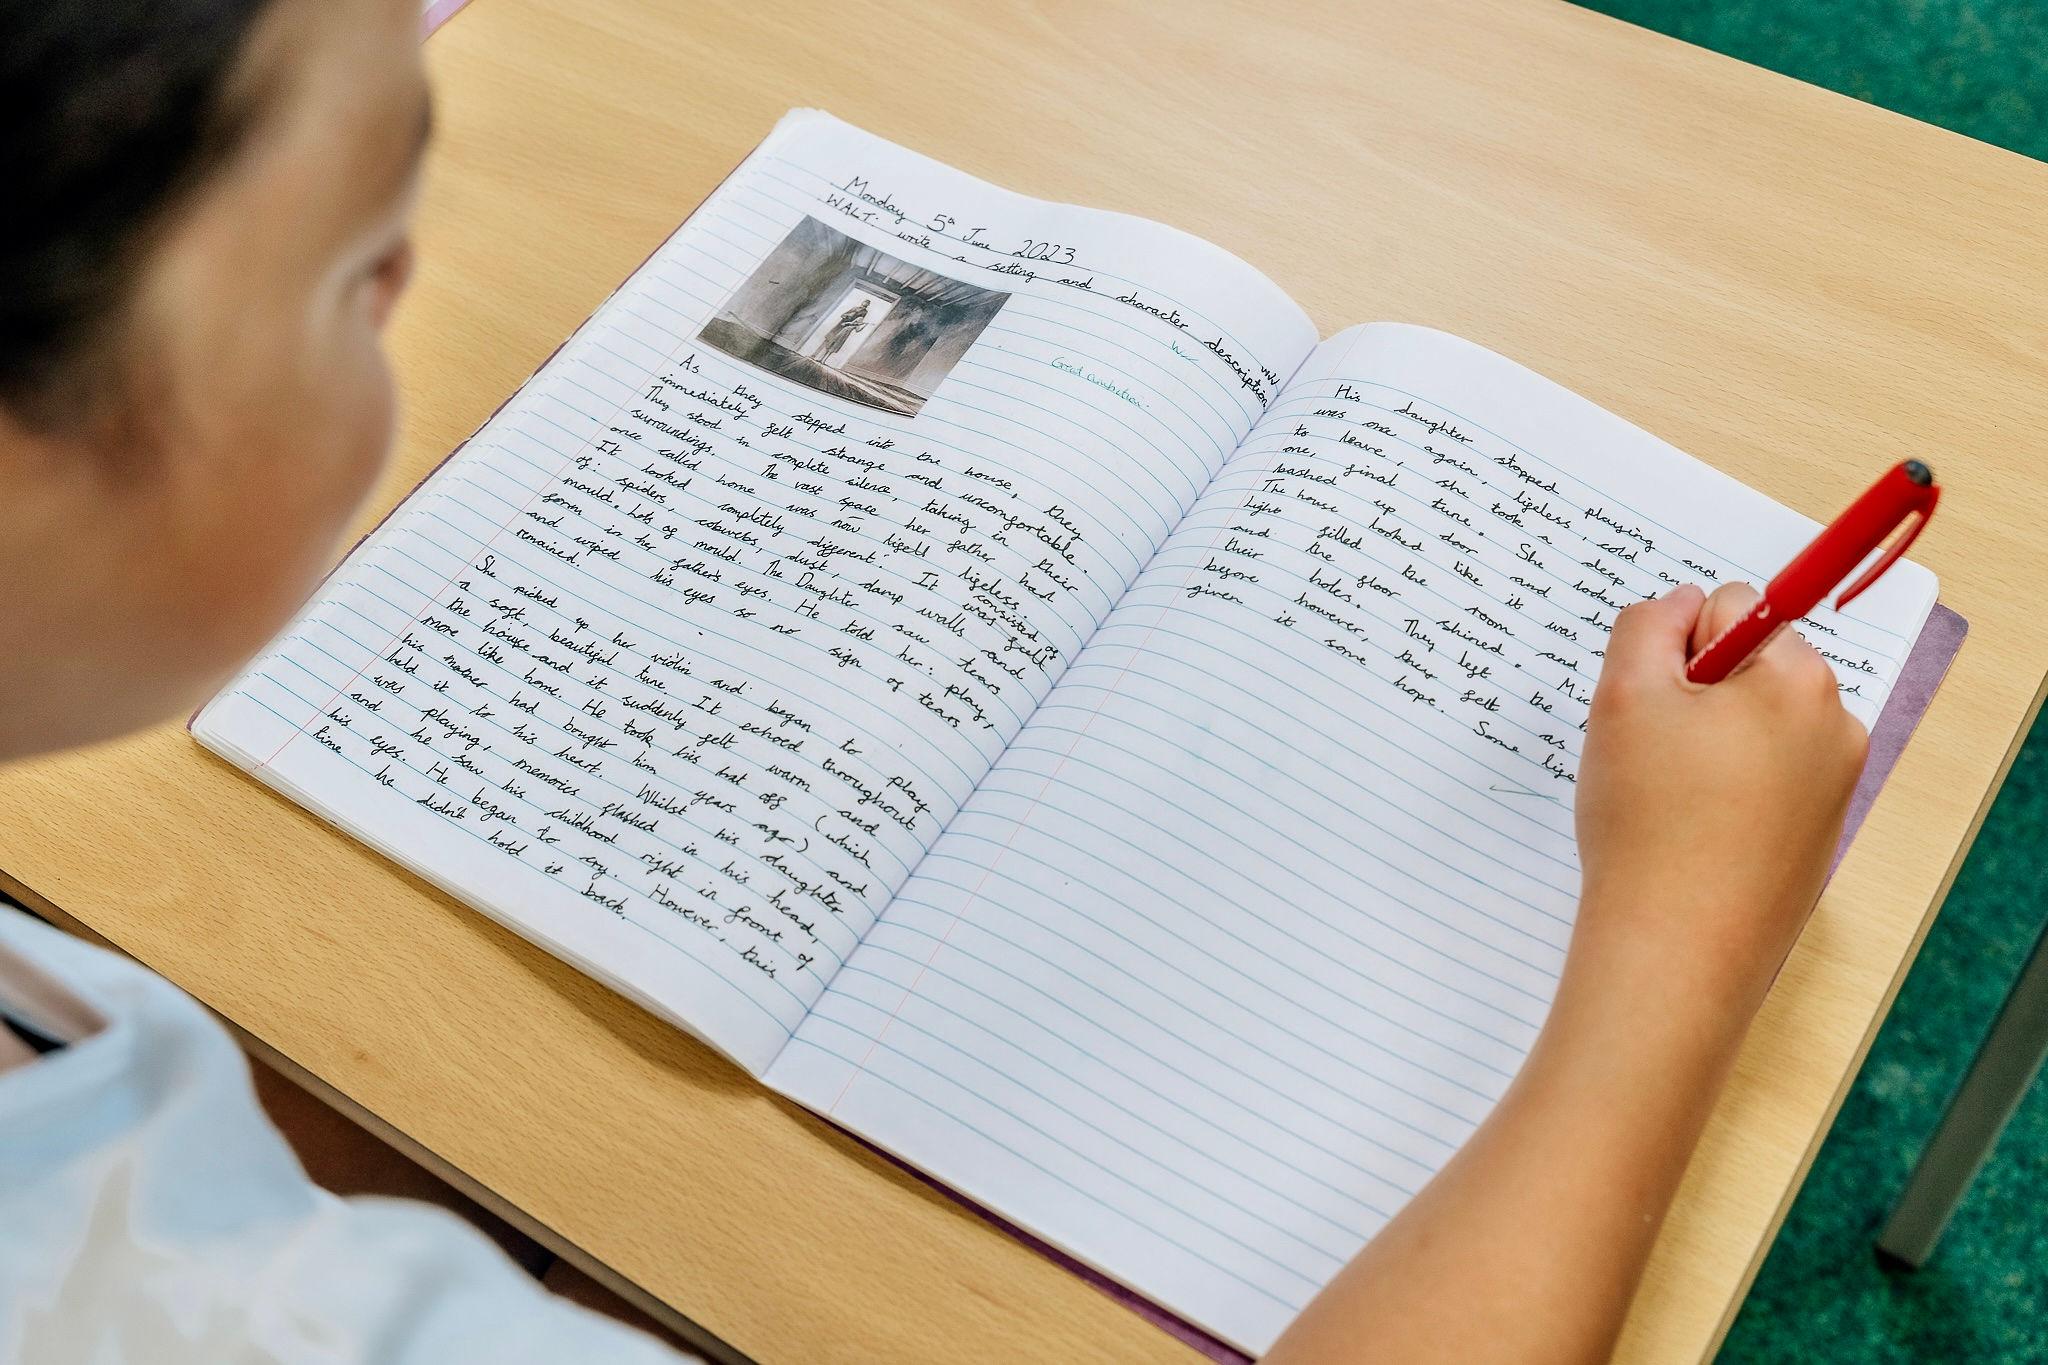 Monday 5th June 2023
WALT: write a setting and character description.
Great ambition.
As they stepped into the house, they
immediately felt strange and uncomfortable.
They stood in complete silence, taking in their
surroundings. The vast space her father had
once called home was now lifeless.
It looked completely different. It consisted of
of: spiders, cobwebs, dust, damp walls and
mould. Lots of mould. The Daughter saw tears
form in her father's eyes. He told her: play,
and wiped his eyes so no sign of tears
remained.
She picked up her violin and began to play
a soft, beautiful tune. It echoed throughout
the house and it suddenly felt warm and
more like home. He took his hat off (which
his mother had bought him years ago) and
held it to his heart. Whilst his daughter
was playing, memories flashed in his head,
and he saw his childhood right in front of
his eyes. He began to cry. However, this
time he didn't hold it back.
His daughter stopped playing and room
was once again, lifeless, cold and
to leave, she took a deep
one, final tune. She looked
bashed up door and
The house looked like it was
light filled the room and
and the floor shined.
their holes. They left the
before however, they felt as
given it some hope. Some life